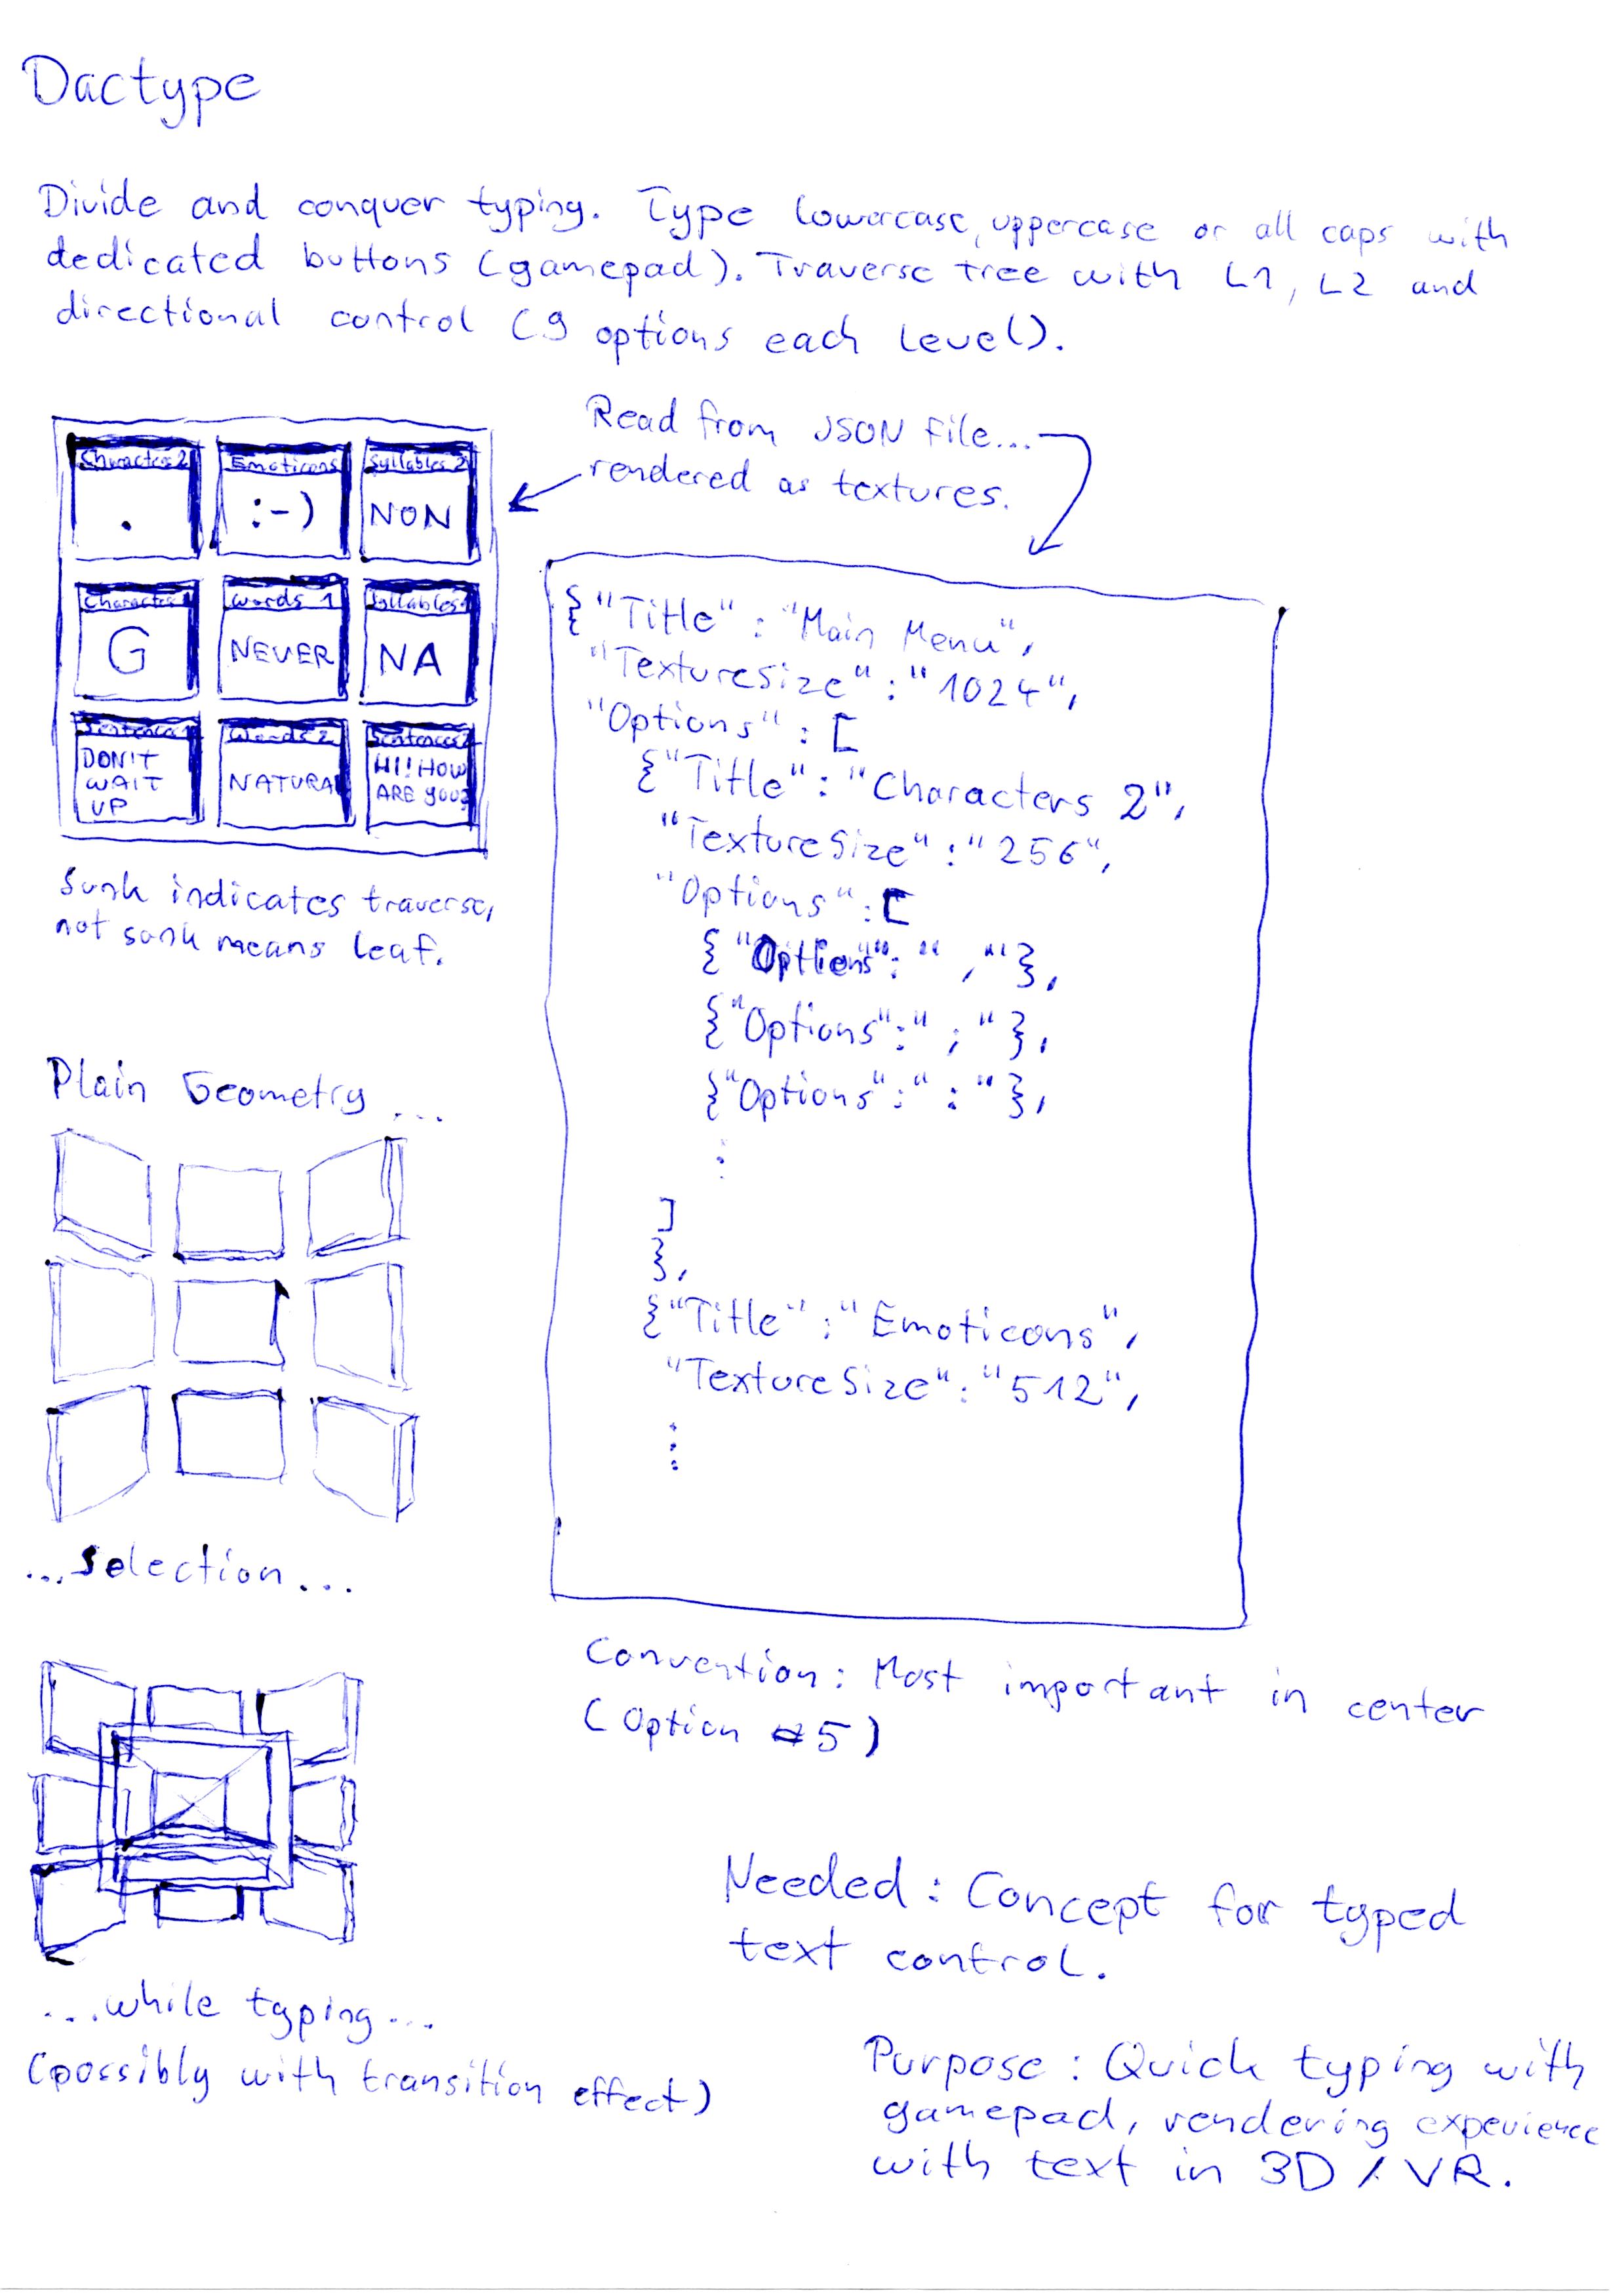 Dactype
Divide and conquer typing. Type lowercase, uppercase or all caps with
dedicated buttons (gamepad). Traverse tree with L1, L2 and
directional control (9 options each level).
Read from JSON file...
rendered as textures.
Characters 2 Emoticons Syllables 2
. :-) NON
Characters 1 Words 1 Syllables 1
G NEVER NA
Sentences 1 Words 2 Sentences 2
DON'T
WAIT
UP
NATURAL
HI! HOW
ARE YOU?
Sunk indicates traverse,
not sunk means leaf.
{"Title" : "Main Menu",
"Texturesize" : "1024",
"Options" : [
{"Title" : "Characters 2",
"TextureSize" : "256",
"Options" : [
{"Options" : ","},
{"Options" : ";"},
{"Options" : ":"},
⋮
]
},
{"Title" : "Emoticons",
"TextureSize" : "512",
⋮
Plain Geometry...
...Selection...
Convention: Most important in center
(Option #5)
...while typing...
(possibly with transition effect)
Needed: Concept for typed
text control.
Purpose: Quick typing with
gamepad, rendering experience
with text in 3D / VR.